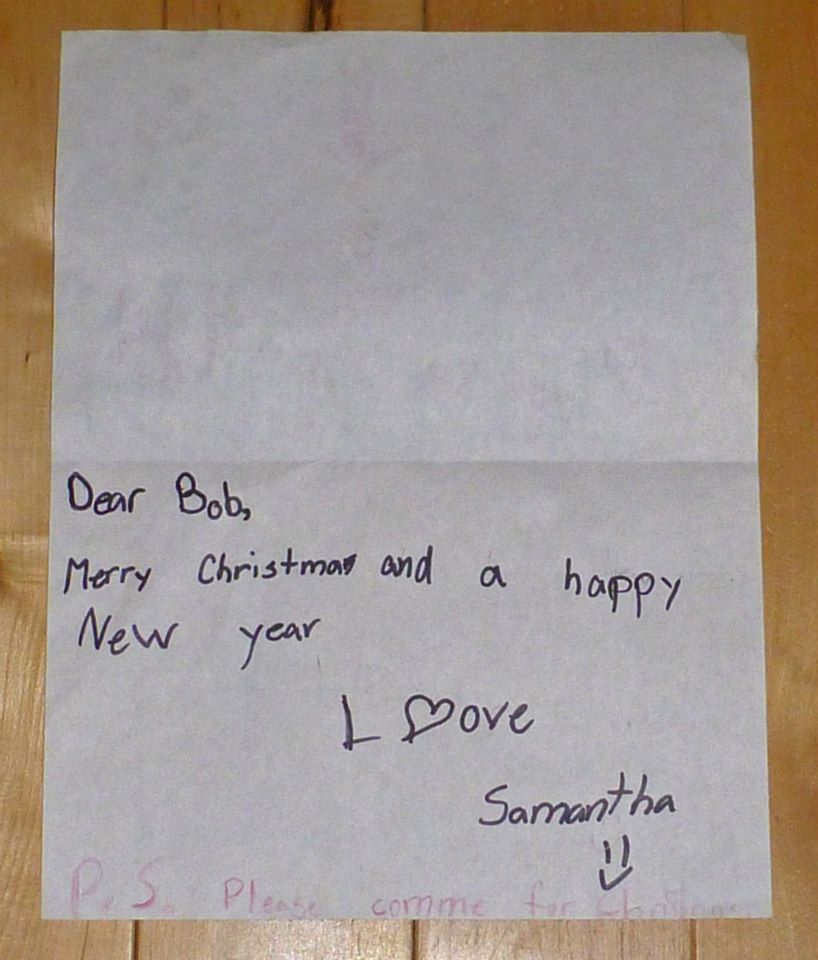 Dear Bob,
Merry Christmas and a happy
New year
L♡ove
Samantha
P.S. Please comme for Christmas